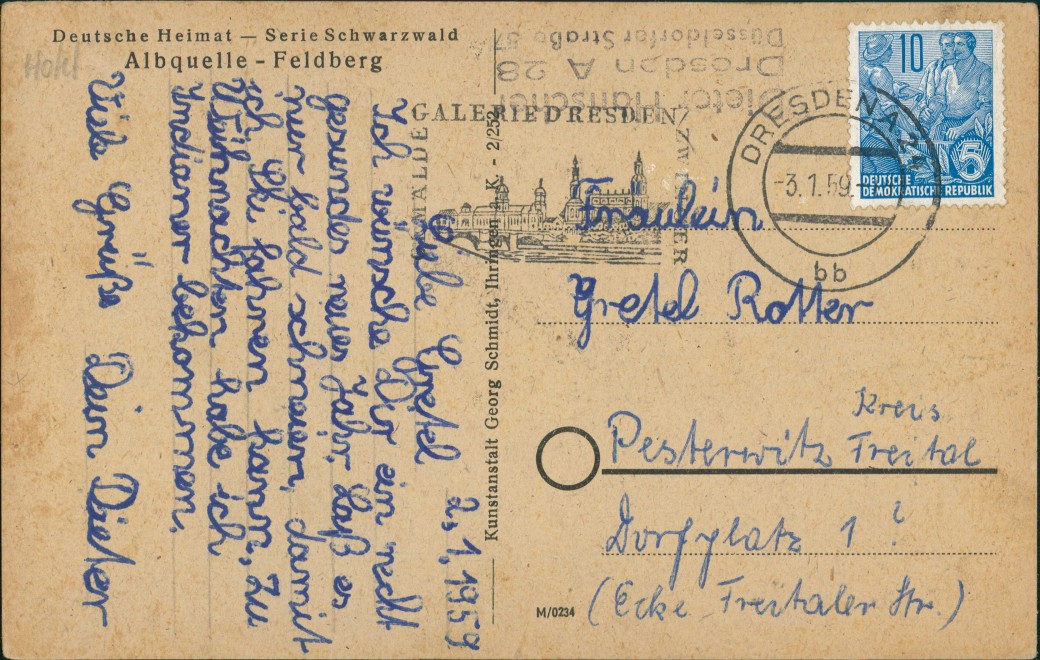 Deutsche Heimat — Serie Schwarzwald
Albquelle - Feldberg
Hotel
2.1.1959
Liebe Gretel
Ich wünsche Dir ein recht
gesundes neues Jahr, laß es
nur bald schneien, damit
ich Ski fahren kann, zu
Weihnachten habe ich
Indianer bekommen.
Viele Grüße Dein Dieter
Kunstanstalt Georg Schmidt, Ihringen a. K. - 2/252
Dieter Hänschel
Dresden A 28
Düsseldorfer Straße 57
GALERIE DRESDEN
GEMÄLDE
ZWINGER
DRESDEN A 24
-3.1.59
bb
10
5
DEUTSCHE
DEMOKRATISCHE REPUBLIK
Fräulein
Gretel Rotter
Kreis
Pesterwitz Freital
Dorfplatz 1 ?
(Ecke Freitaler Str.)
M/0234